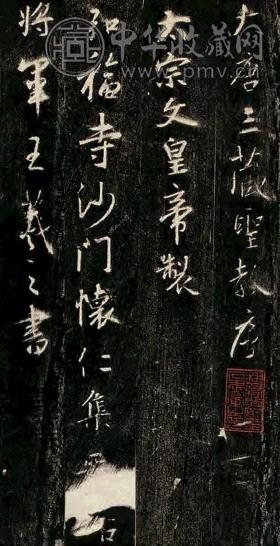 大唐三藏聖教序
太宗文皇帝製
弘福寺沙門懷仁集 右
將軍王羲之書
中华收藏网
www.pmv.cn